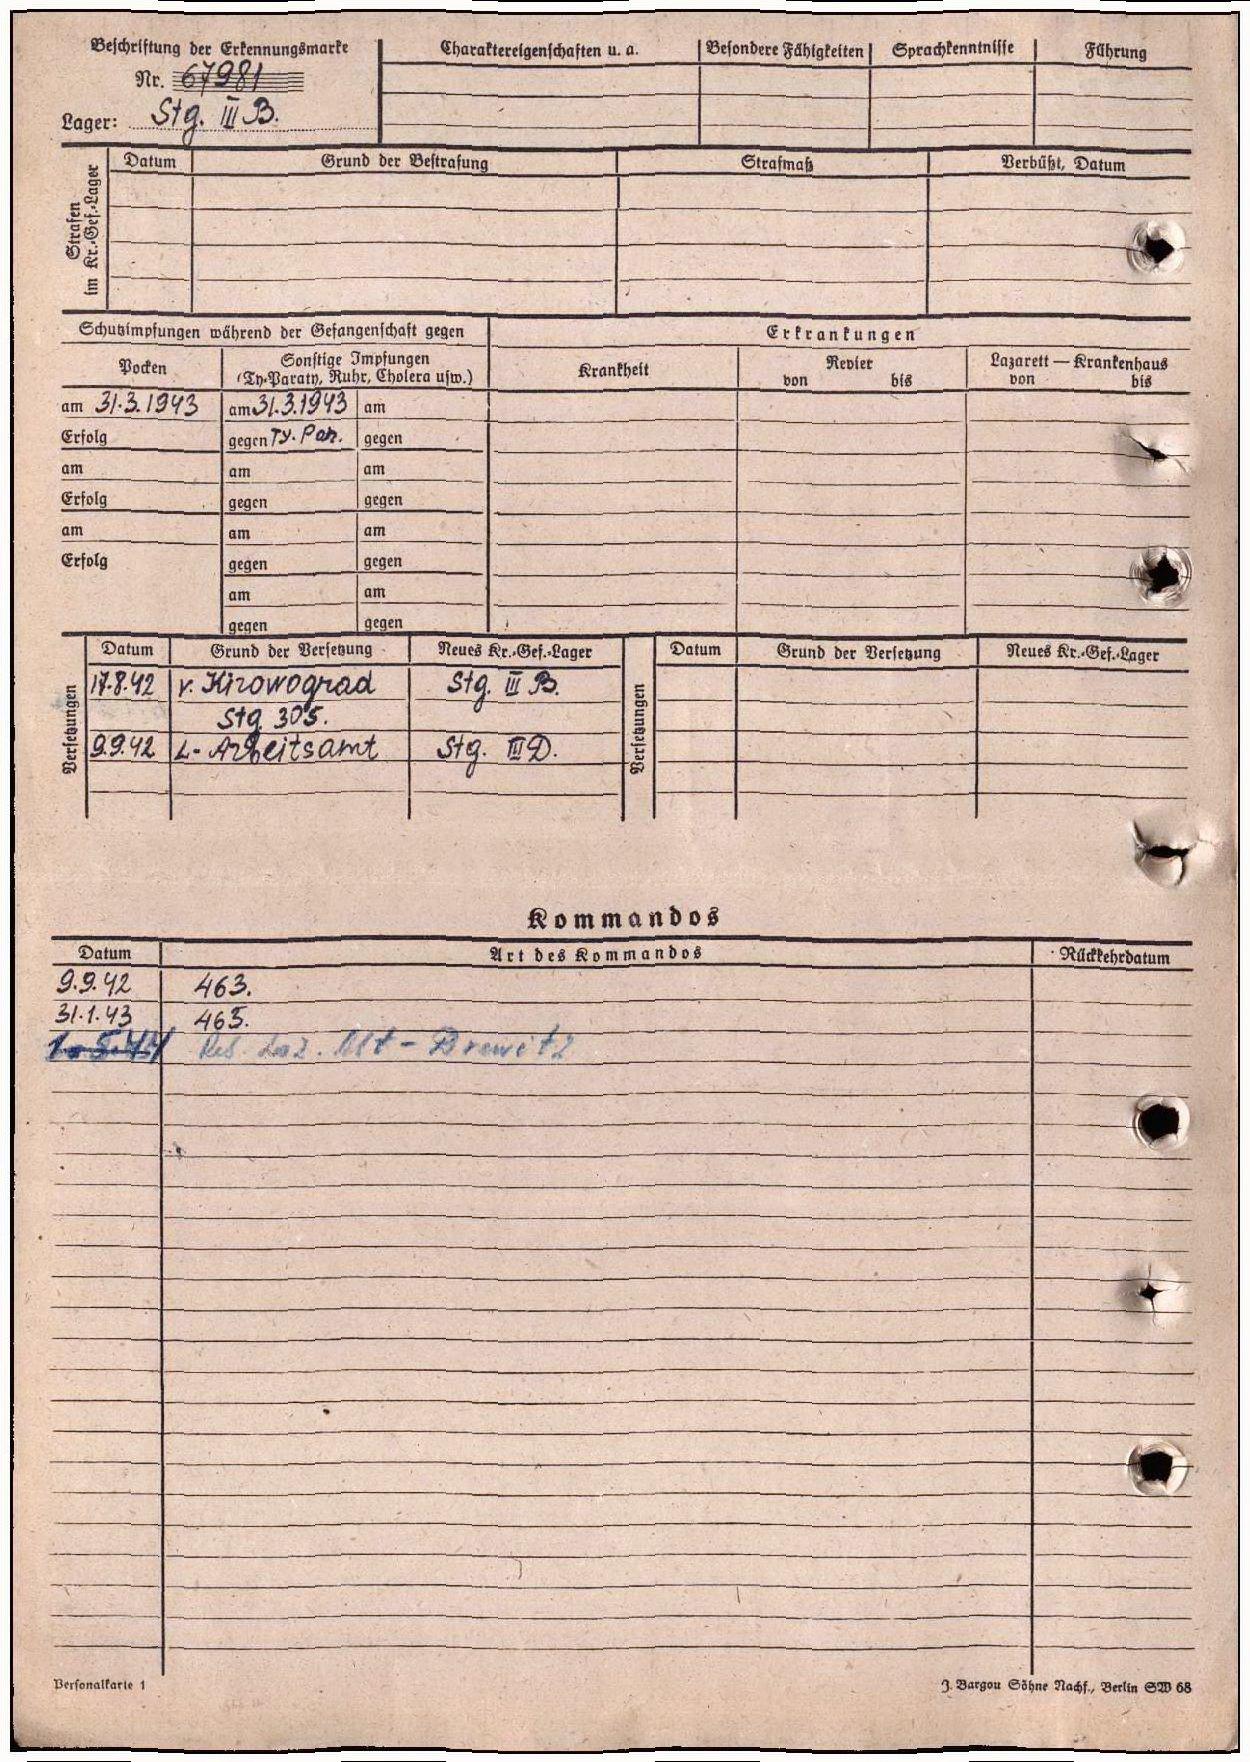 Beschriftung der Erkennungsmarke
Nr. 67981
Lager: Stg. III B.
Charaktereigenschaften u. a.
Besondere Fähigkeiten
Sprachkenntnisse
Führung
Strafen
im Kr.-Gef.-Lager
Datum
Grund der Bestrafung
Strafmaß
Verbüßt, Datum
Schutzimpfungen während der Gefangenschaft gegen
Erkrankungen
Pocken
Sonstige Impfungen
(Ty-Paraty, Ruhr, Cholera usw.)
Krankheit
Revier
von bis
Lazarett — Krankenhaus
von bis
am 31.3.1943 am 31.3.1943 am
Erfolg gegen Ty. Par. gegen
am am am
Erfolg gegen gegen
am am am
Erfolg gegen gegen
am am
gegen gegen
Versetzungen
Datum Grund der Versetzung Neues Kr.-Gef.-Lager
17.8.42 v. Kirowograd Stg. III B.
Stg. 305.
9.9.42 L- Arbeitsamt Stg. III D.
Versetzungen
Datum Grund der Versetzung Neues Kr.-Gef.-Lager
Kommandos
Datum Art des Kommandos Rückkehrdatum
9.9.42 463.
31.1.43 465.
Res. Laz. Alt-Drewitz
Personalkarte 1
J. Bargou Söhne Nachf., Berlin SW 68